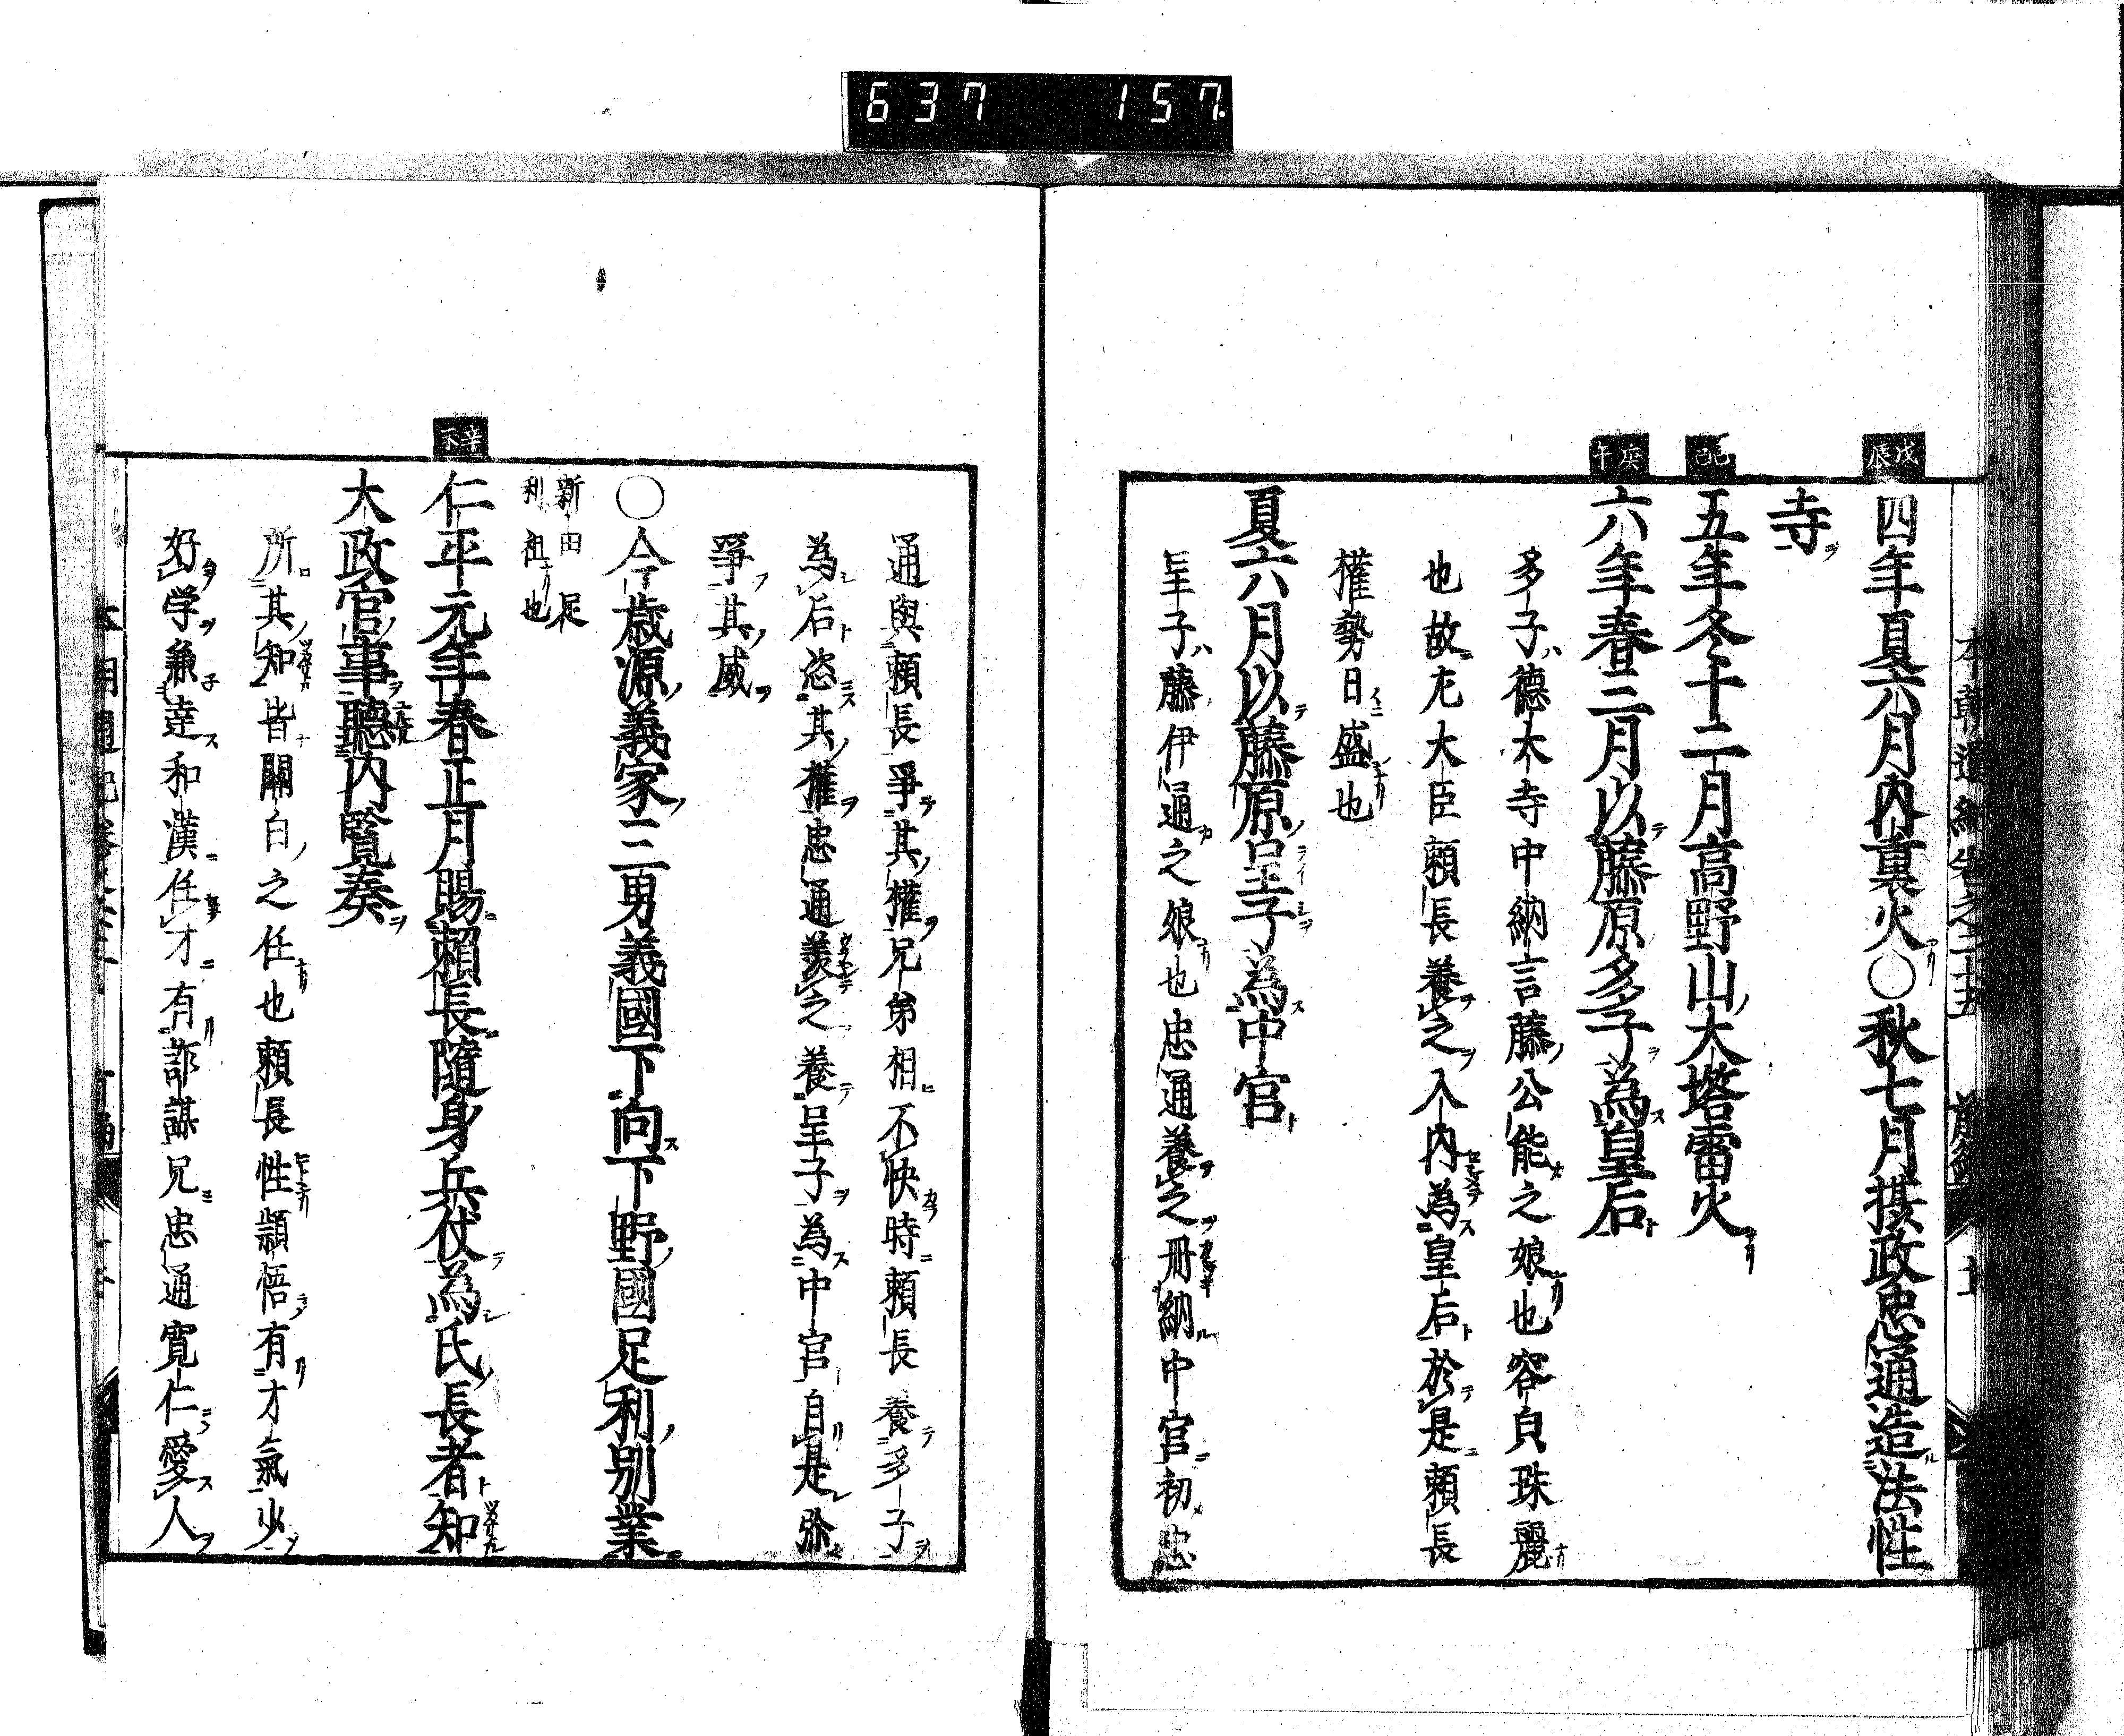 637 157
戊辰
四年夏六月内裏火○秋七月摂政忠通造法性
寺
己巳
五年冬十二月高野山大塔雷火
庚午
六年春三月以藤原多子為皇后
多子ハ徳大寺中納言藤公能之娘也容貌珠麗
也故左大臣頼長養之入内為皇后於是頼長
権勢日盛也
夏六月以藤原呈子為中宮
呈子ハ藤伊通之娘也忠通養之冊納中宮初忠
通與頼長爭其權兄弟相不快時頼長養多子
為后恣其權忠通羨之養呈子為中宮自是弥
爭其威
○今歳源義家三男義國下向下野國足利別業
新田足
利祖也
辛未
仁平元年春正月賜頼長隨身兵仗為氏長者知
大政官事聽内覧奏
所其知皆關白之任也頼長性頴悟有才氣少
好学兼達和漢任才有詐謀兄忠通寛仁愛人